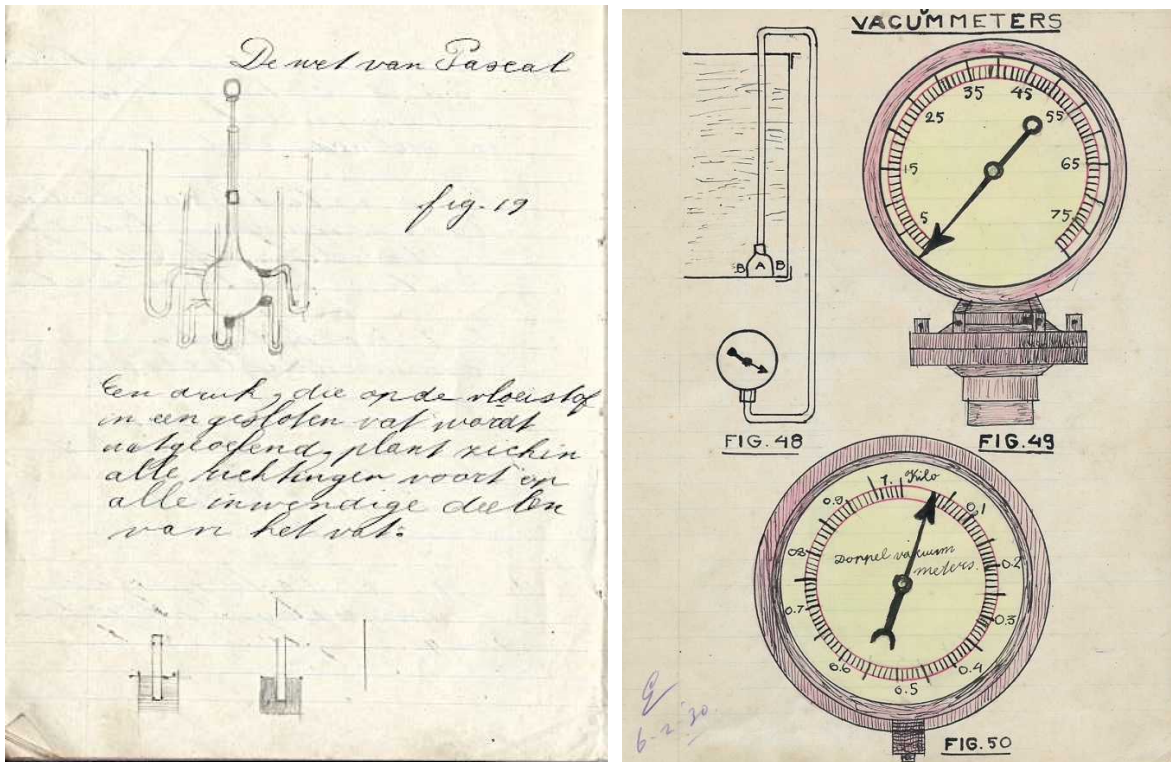 De wet van Pascal
fig. 19
Een druk, die op de vloeistof
in een gesloten vat wordt
uitgeoefend, plant zich in
alle richtingen voort op
alle inwendige deelen
van het vat.
VACUMMETERS
B A B
FIG. 48
5
15
25
35
45
55
65
75
FIG. 49
1. Kilo
0.1
0.2
0.3
0.4
0.5
0.6
0.7
0.8
0.9
Doppel vakuum
meters.
FIG. 50
6-2-'30